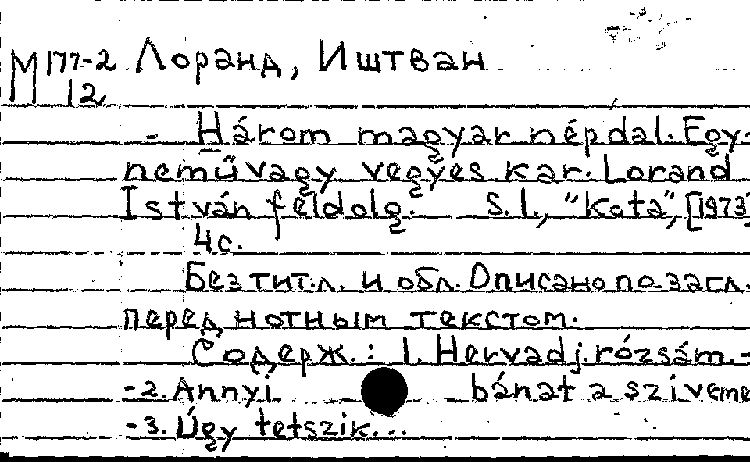 М 177-2 Лоранд, Иштван
12
- Három magyar népdal. Egy-
nemű vagy vegyes kar. Lorand
István feldolg. S. l., "Kota", [1973]
4с.
Без тит. л. и обл. Описано по загл.
перед нотным текстом.
Содерж.: 1. Hervadj rózsám. -
- 2. Annyi bánat a sziveme
- 3. Úgy tetszik...